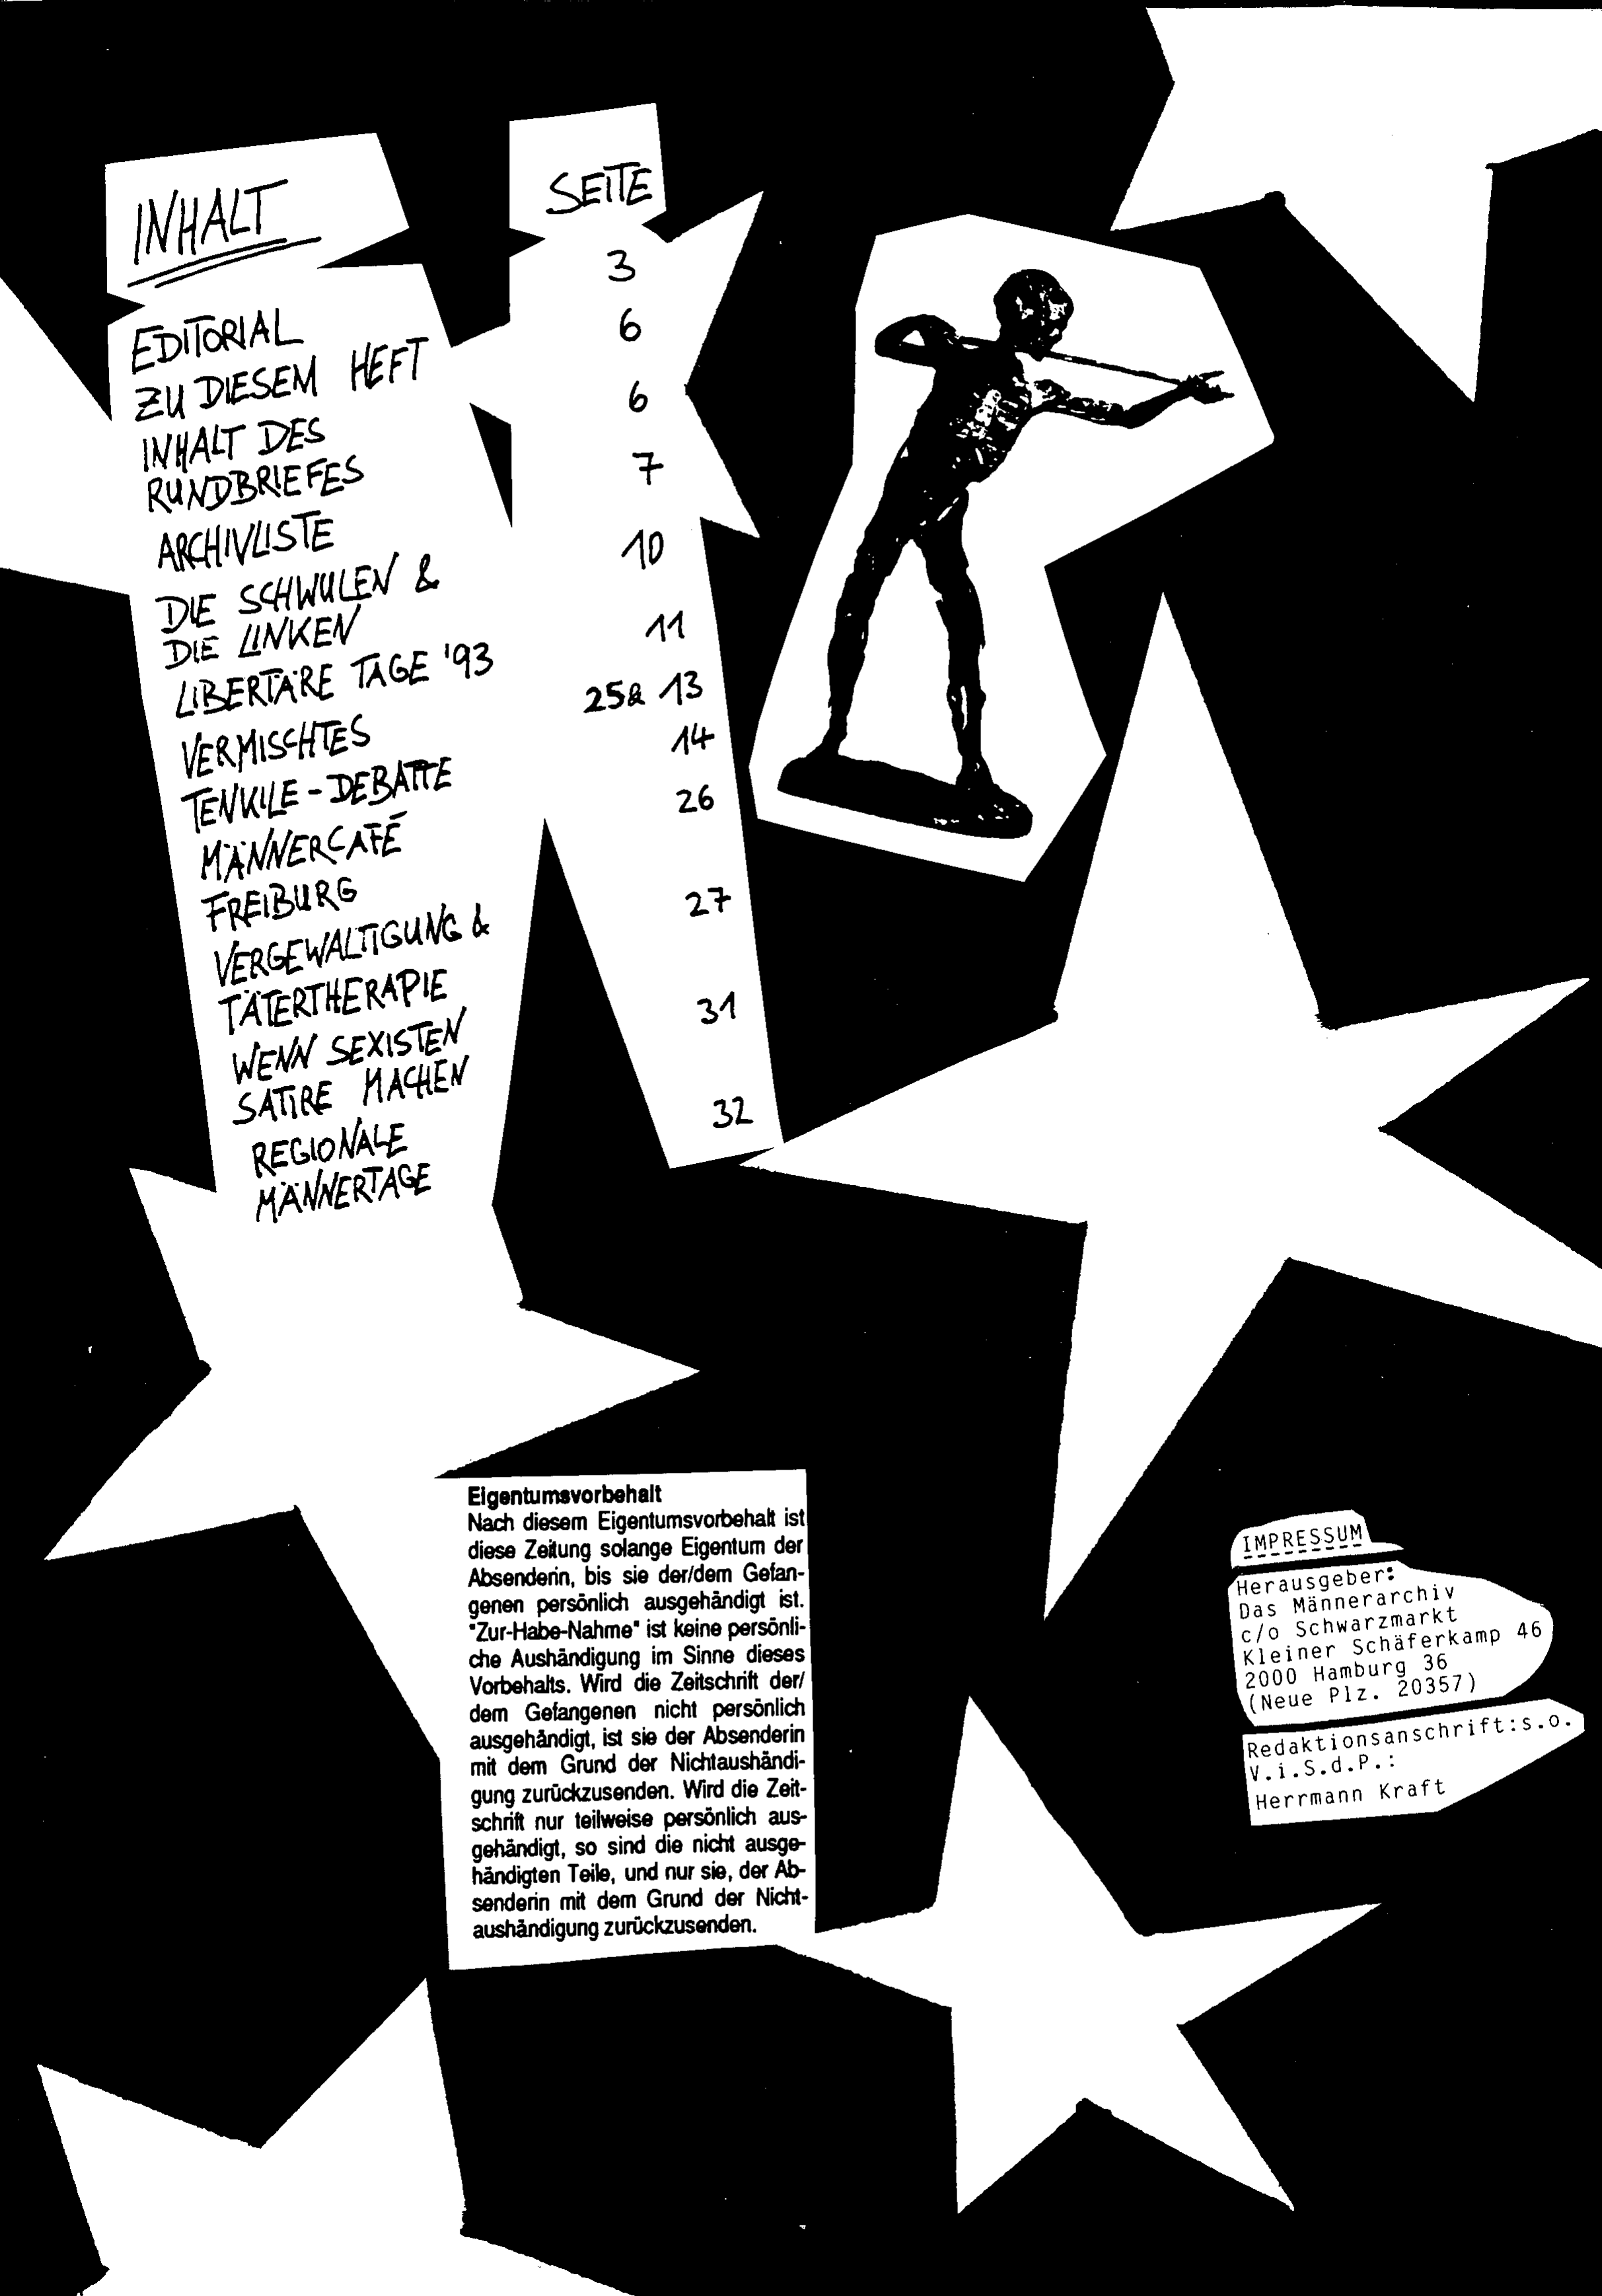 INHALT
SEITE
EDITORIAL 3
ZU DIESEM HEFT 6
INHALT DES
RUNDBRIEFES 6
ARCHIVLISTE 7
DIE SCHWULEN &
DIE LINKEN 10
LIBERTÄRE TAGE '93 11
VERMISCHTES 25& 13
TENKILE-DEBATTE 14
MÄNNERCAFÉ
FREIBURG 26
VERGEWALTIGUNG &
TÄTERTHERAPIE 27
WENN SEXISTEN
SATIRE MACHEN 31
REGIONALE
MÄNNERTAGE 32
Eigentumsvorbehalt
Nach diesem Eigentumsvorbehalt ist
diese Zeitung solange Eigentum der
Absenderin, bis sie der/dem Gefan-
genen persönlich ausgehändigt ist.
"Zur-Habe-Nahme" ist keine persönli-
che Aushändigung im Sinne dieses
Vorbehalts. Wird die Zeitschrift der/
dem Gefangenen nicht persönlich
ausgehändigt, ist sie der Absenderin
mit dem Grund der Nichtaushändi-
gung zurückzusenden. Wird die Zeit-
schrift nur teilweise persönlich aus-
gehändigt, so sind die nicht ausge-
händigten Teile, und nur sie, der Ab-
senderin mit dem Grund der Nicht-
aushändigung zurückzusenden.
IMPRESSUM
Herausgeber:
Das Männerarchiv
c/o Schwarzmarkt
Kleiner Schäferkamp 46
2000 Hamburg 36
(Neue Plz. 20357)
Redaktionsanschrift:s.o.
V.i.S.d.P.:
Herrmann Kraft